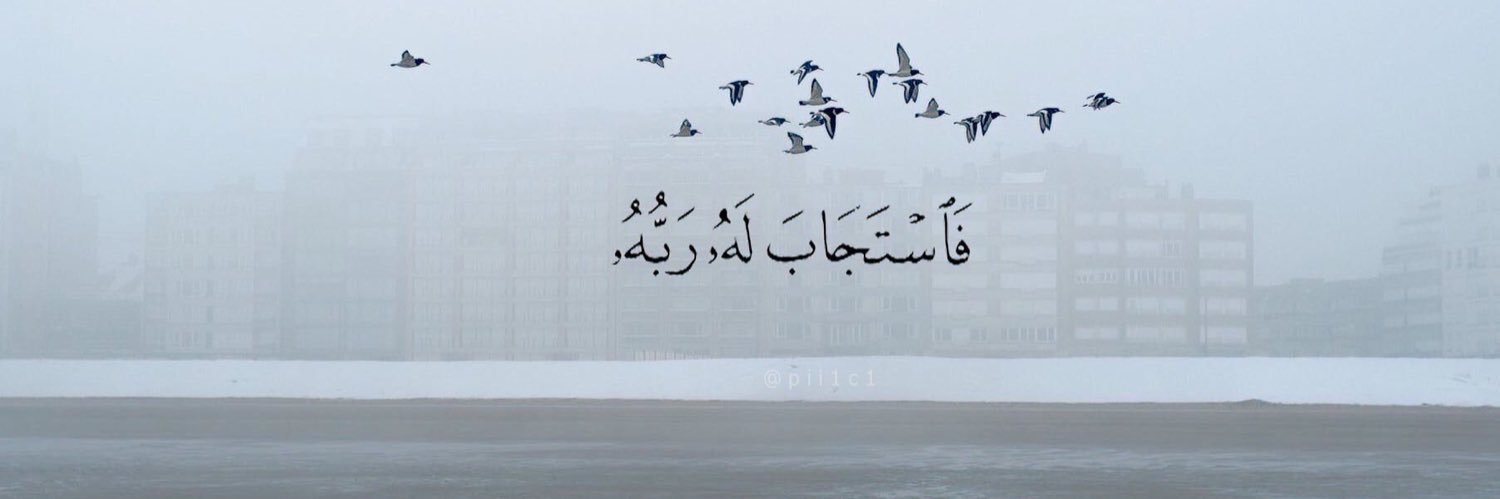 فَٱسۡتَجَابَ لَهُۥ رَبُّهُۥ
@pii1c1